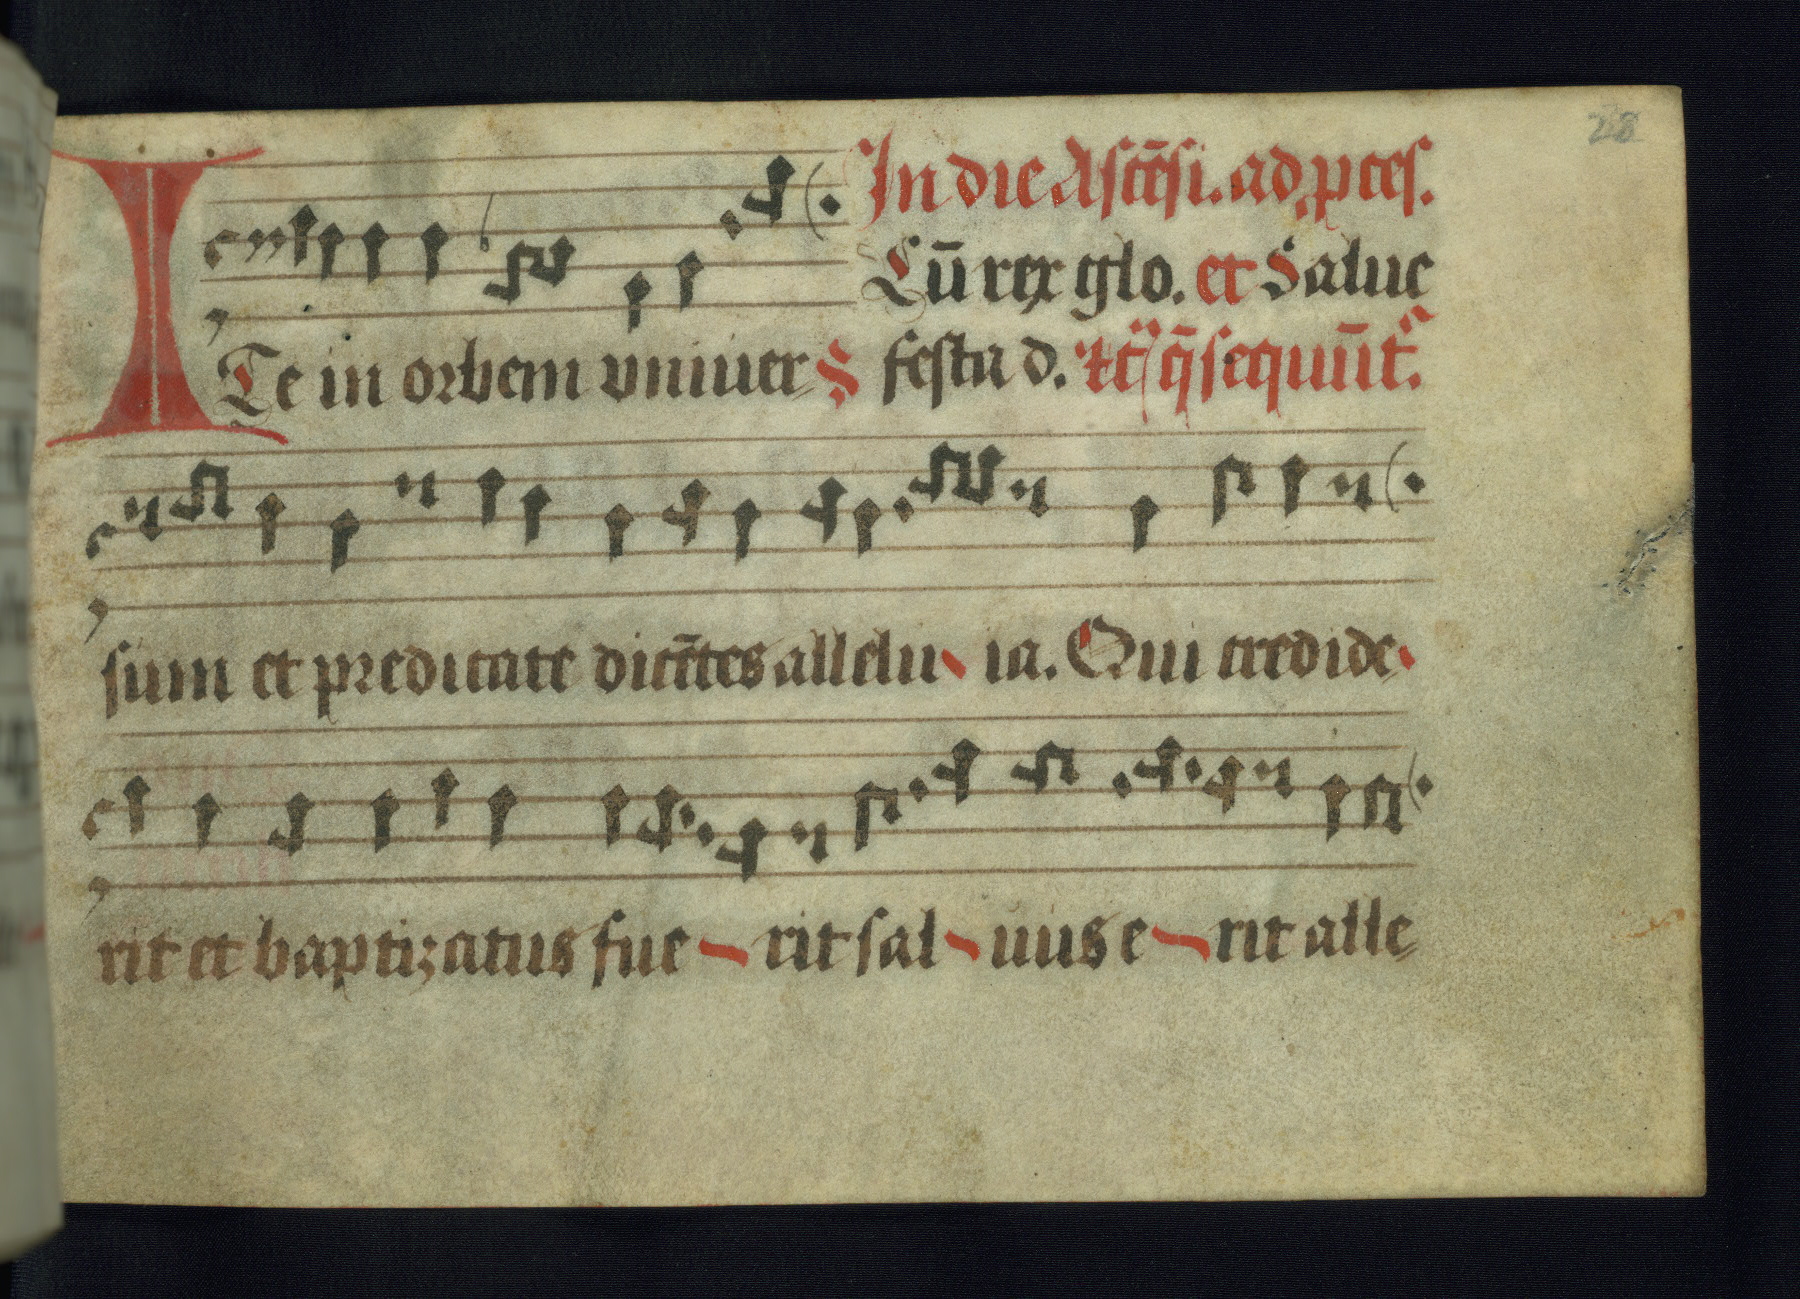 28
In die Ascēsi. ad p̱ces.
Cū rex glo. et Salue
ITe in orbem vniuer festa d. ⁊c̄ q̄ sequūt̉.
sum et predicate dicētes allelu ia. Qui credide
rit et baptizatus fue rit sal uus e rit alle